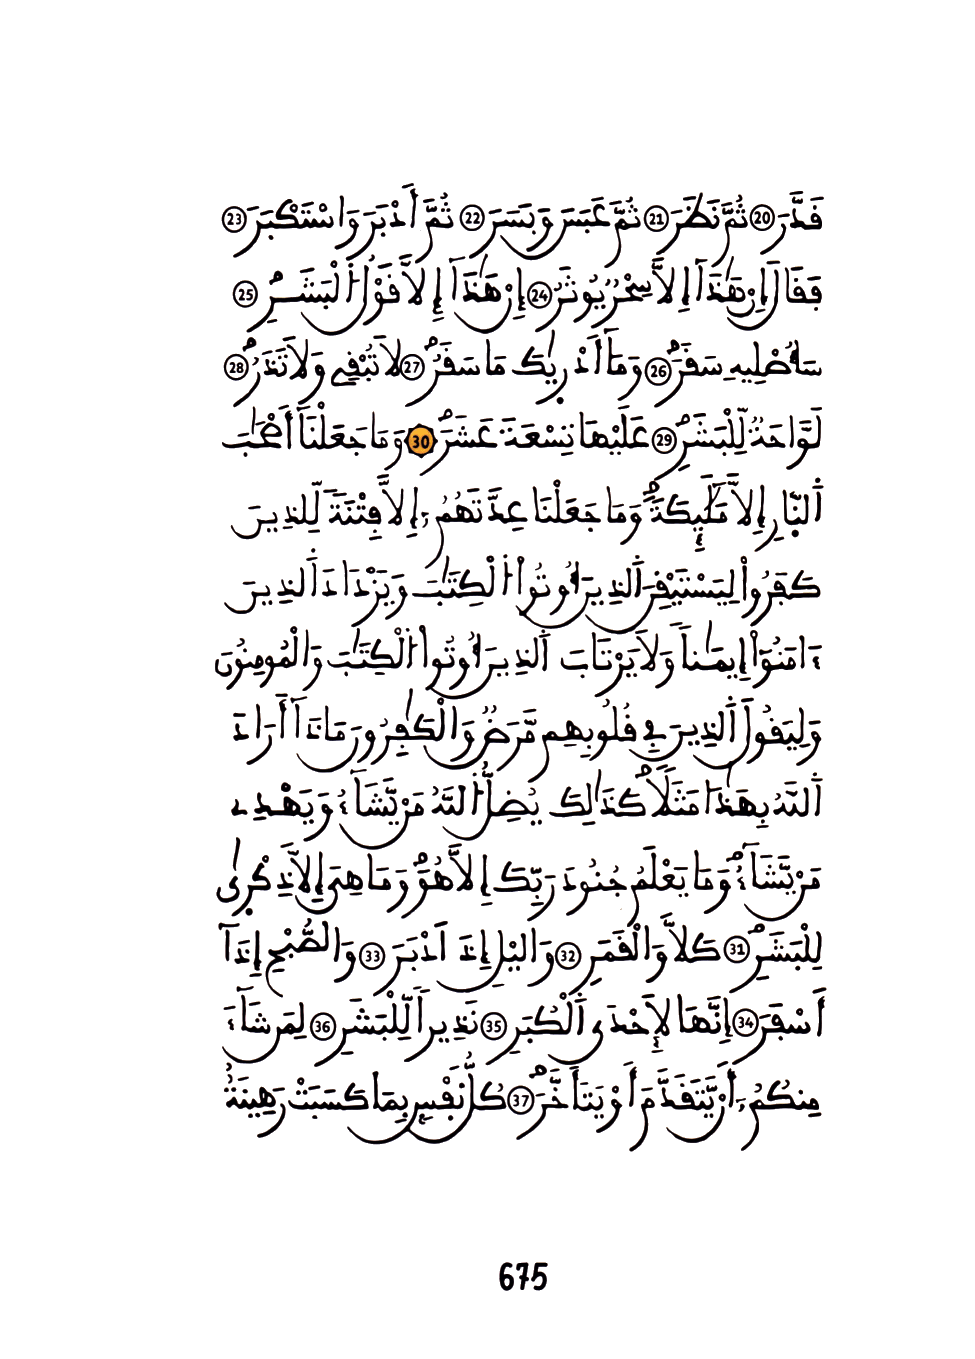 قَدَّرَ 20 ثُمَّ نَظَرَ 21 ثُمَّ عَبَسَ وَبَسَرَ 22 ثُمَّ أَدْبَرَ وَاسْتَكْبَرَ 23
فَقَالَ إِنْ هَٰذَآ إِلَّا سِحْرٌ يُوثَرُ 24 إِنْ هَٰذَآ إِلَّا قَوْلُ اُ۬لْبَشَرِ 25
سَأُصْلِيهِ سَقَرَ 26 وَمَآ أَدْر۪يٰكَ مَا سَقَرُ 27 لَا تُبْقِے وَلَا تَذَرُ 28
لَوَّاحَةٌ لِّلْبَشَرِ 29 عَلَيْهَا تِسْعَةَ عَشَرَ 30 وَمَا جَعَلْنَآ أَصْحَٰبَ
اَ۬لنّ۪ارِ إِلَّا مَلَٰٓئِكَةٗ وَمَا جَعَلْنَا عِدَّتَهُمُۥٓ إِلَّا فِتْنَةٗ لِّلذِينَ
كَفَرُواْ لِيَسْتَيْقِنَ اَ۬لذِينَ أُوتُواْ اُ۬لْكِتَٰبَ وَيَزْدَادَ اَ۬لذِينَ
ءَامَنُوٓاْ إِيمَٰناٗ وَلَا يَرْتَابَ اَ۬لذِينَ أُوتُواْ اُ۬لْكِتَٰبَ وَالْمُومِنُونَ
وَلِيَقُولَ اَ۬لذِينَ فِے قُلُوبِهِم مَّرَضٞ وَالْكَٰفِرُونَ مَاذَآ أَرَادَ
اَ۬للَّهُ بِهَٰذَا مَثَلاٗ كَذَٰلِكَ يُضِلُّ اُ۬للَّهُ مَنْ يَّشَآءُ وَيَهْدِے
مَنْ يَّشَآءُ وَمَا يَعْلَمُ جُنُودَ رَبِّكَ إِلَّا هُوَ وَمَا هِيَ إِلَّا ذِكْر۪ىٰ
لِلْبَشَرِ 31 كَلَّا وَالْقَمَرِ 32 وَاليْلِ إِذَ اَدْبَرَ 33 وَالصُّبْحِ إِذَآ
أَسْفَرَ 34 إِنَّهَا لَإِحْدَى اَ۬لْكُبَرِ 35 نَذِيراٗ لِّلْبَشَرِ 36 لِمَن شَآءَ
مِنكُمُۥٓ أَنْ يَّتَقَدَّمَ أَوْ يَتَأَخَّرَ 37 كُلُّ نَفْسِۢ بِمَا كَسَبَتْ رَهِينَةٌ
675